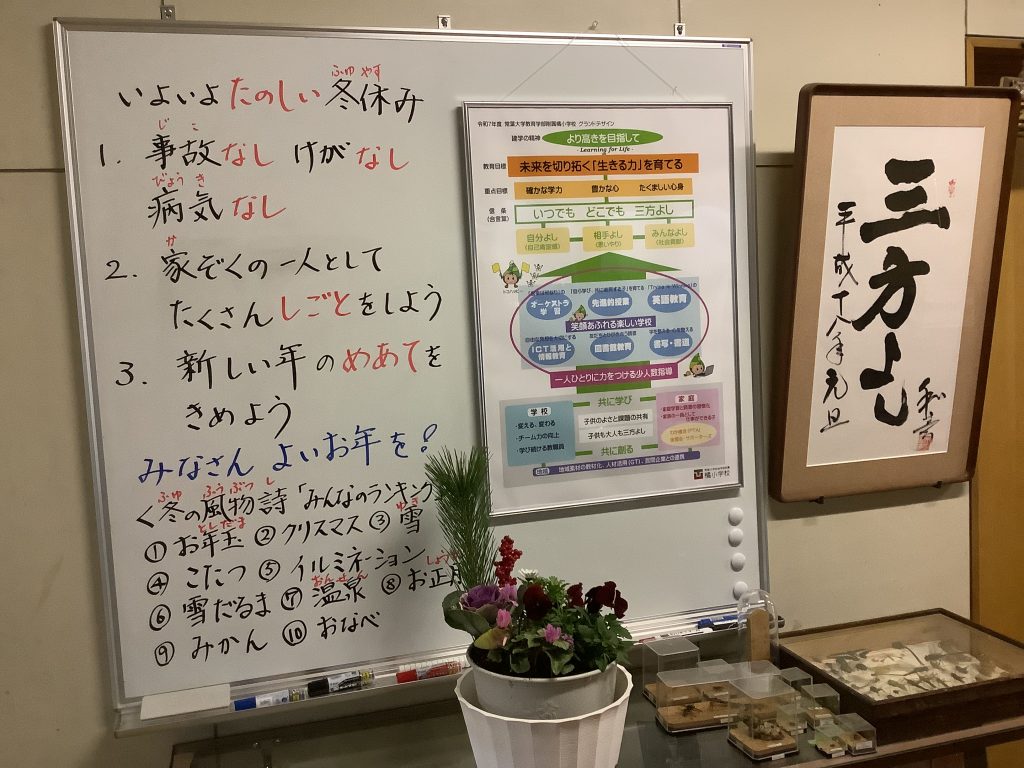 いよいよたのしい冬休み
ふゆ やす
1. 事故なし けがなし
じ こ
病気なし
びょう き
2. 家ぞくの一人として
か
たくさんしごとをしよう
3. 新しい年のめあてを
きめよう
みなさん よいお年を!
<冬の風物詩「みんなのランキング
ふゆ ふうぶつ し
① お年玉 ② クリスマス ③ 雪
としだま ゆき
④ こたつ ⑤ イルミネーション
⑥ 雪だるま ⑦ 温泉 ⑧ お正月
おんせん
⑨ みかん ⑩ おなべ
令和7年度 常葉大学教育学部附属橘小学校 グランドデザイン
建学の精神 より高きを目指して
- Learning for Life -
教育目標 未来を切り拓く「生きる力」を育てる
重点目標 確かな学力 豊かな心 たくましい心身
信条(合言葉) いつでも どこでも 三方よし
自分よし 相手よし みんなよし
(自己肯定感) (思いやり) (社会貢献)
オーケストラ学習 先進的授業 英語教育
笑顔あふれる楽しい学校
ICT活用と情報教育 図書館教育 書写・書道
一人ひとりに力をつける少人数指導
共に学び
学校
・変える、変わる
・チーム力の向上
・学び続ける教職員
子供のよさと課題の共有
子供も大人も三方よし
家庭
共に創る
地域素材の教材化、人材活用(GT)、国際企業との連携
橘小学校
三方よし
平成十八年元旦